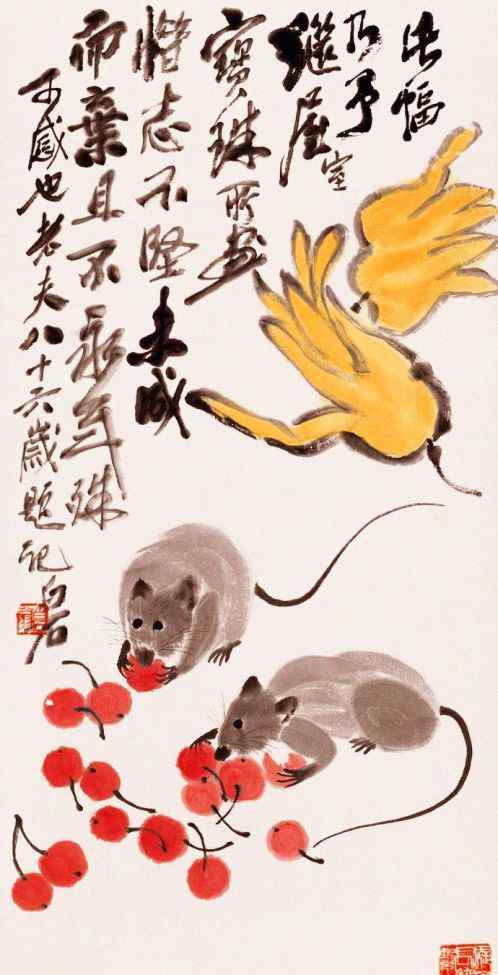 此幅
乃予
繼屋室
寶珠所畫
惜志不堅未成
而棄且不永年殊
可感也老夫八十六歲題記白石